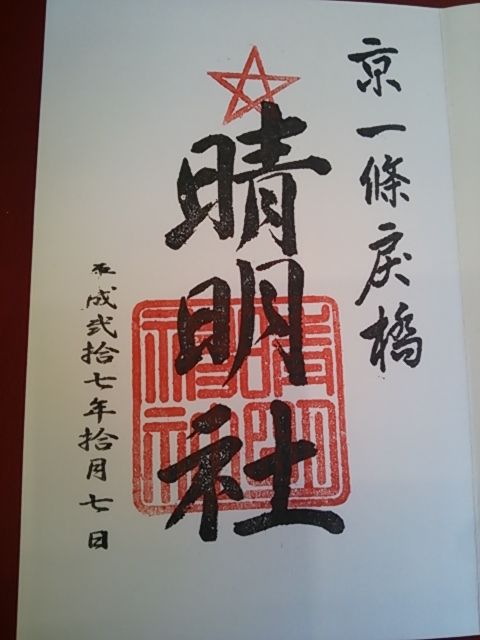 京一條戻橋
晴明社
晴明神社
平成弐拾七年拾月七日